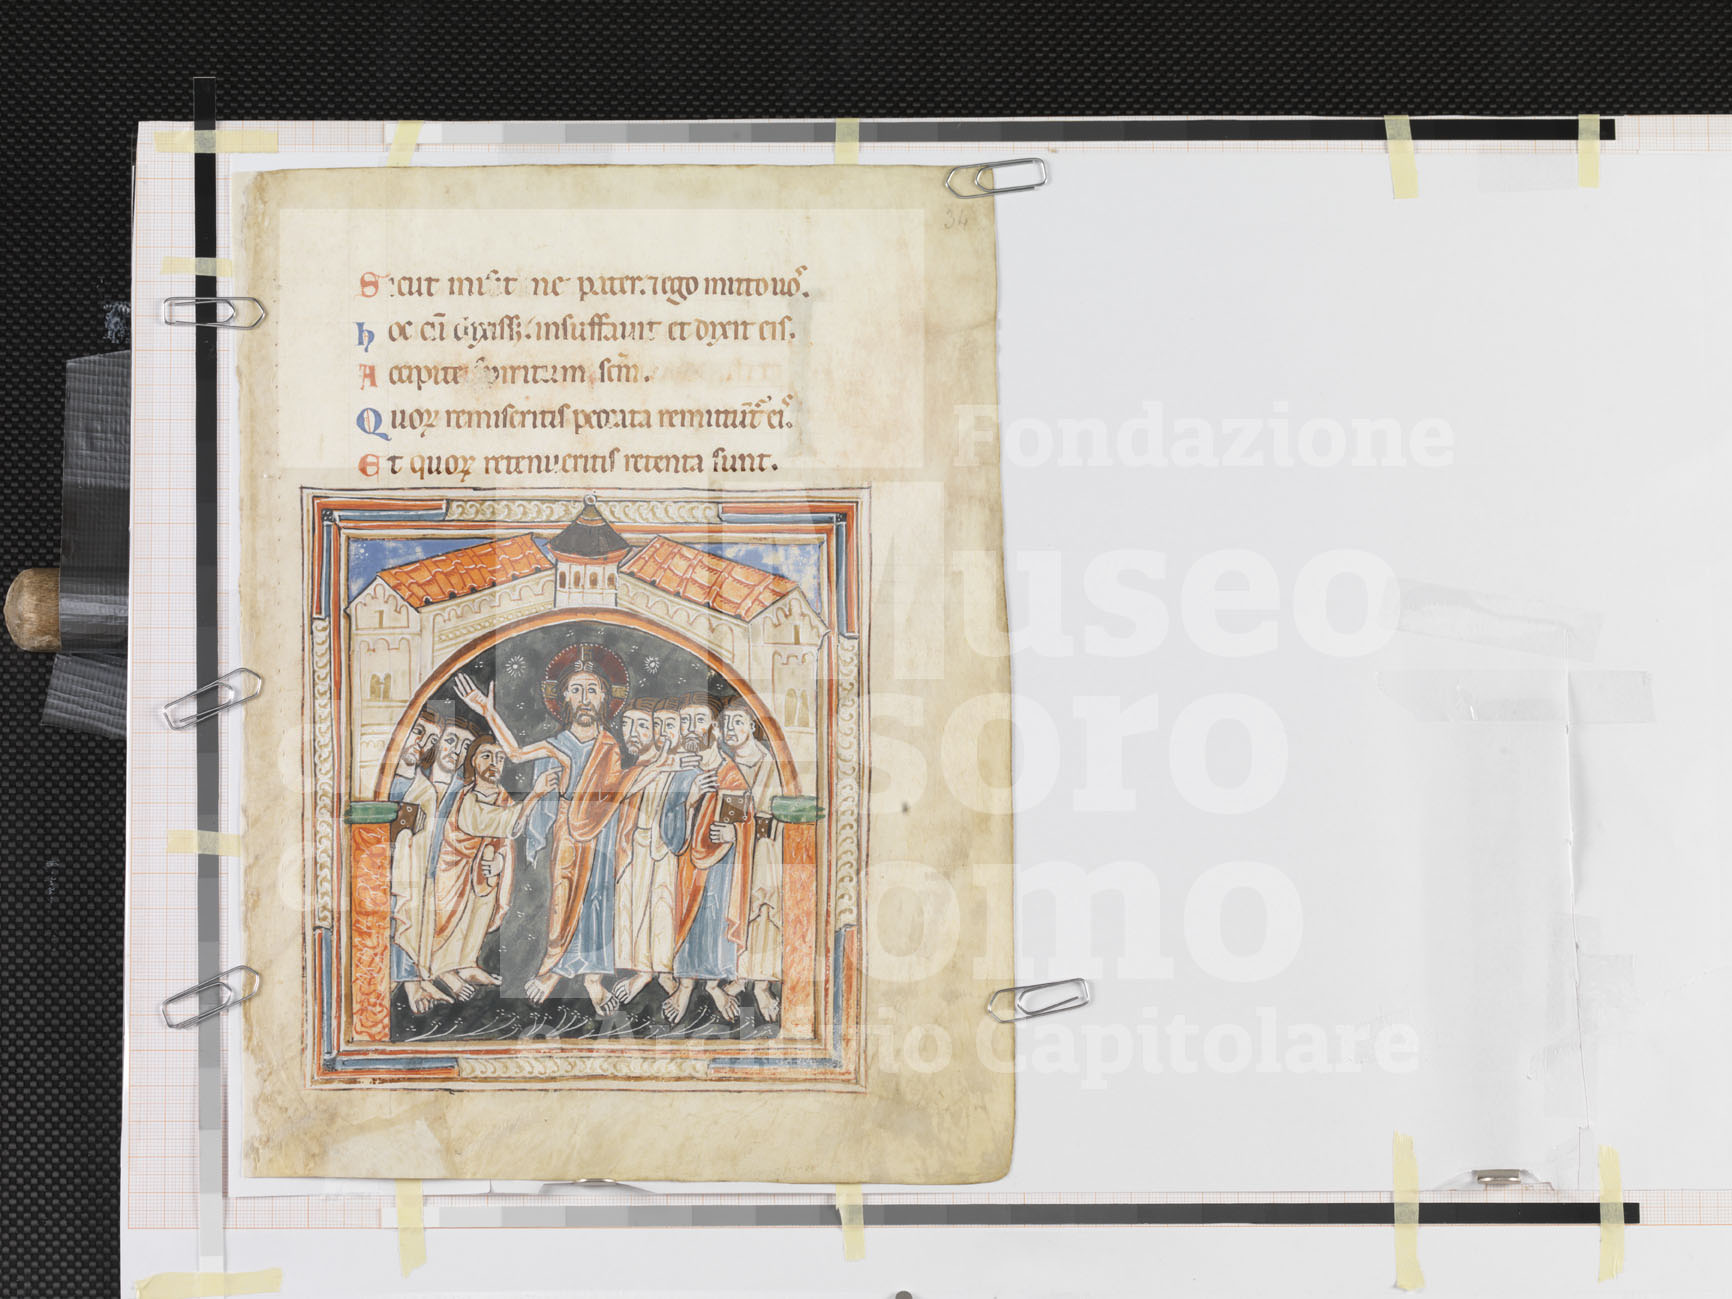 34
Sicut misit me pater. ⁊ ego mitto uos.
hoc cū dixiss;. insufflauit et dixit eis.
Accipite spiritum scm̄.
Quoꝝ remiseritis peccata remittūt᷑ eis.
Et quoꝝ retenueritis retenta sunt.
Fondazione
Museo
del Tesoro
del Duomo
e Archivio Capitolare